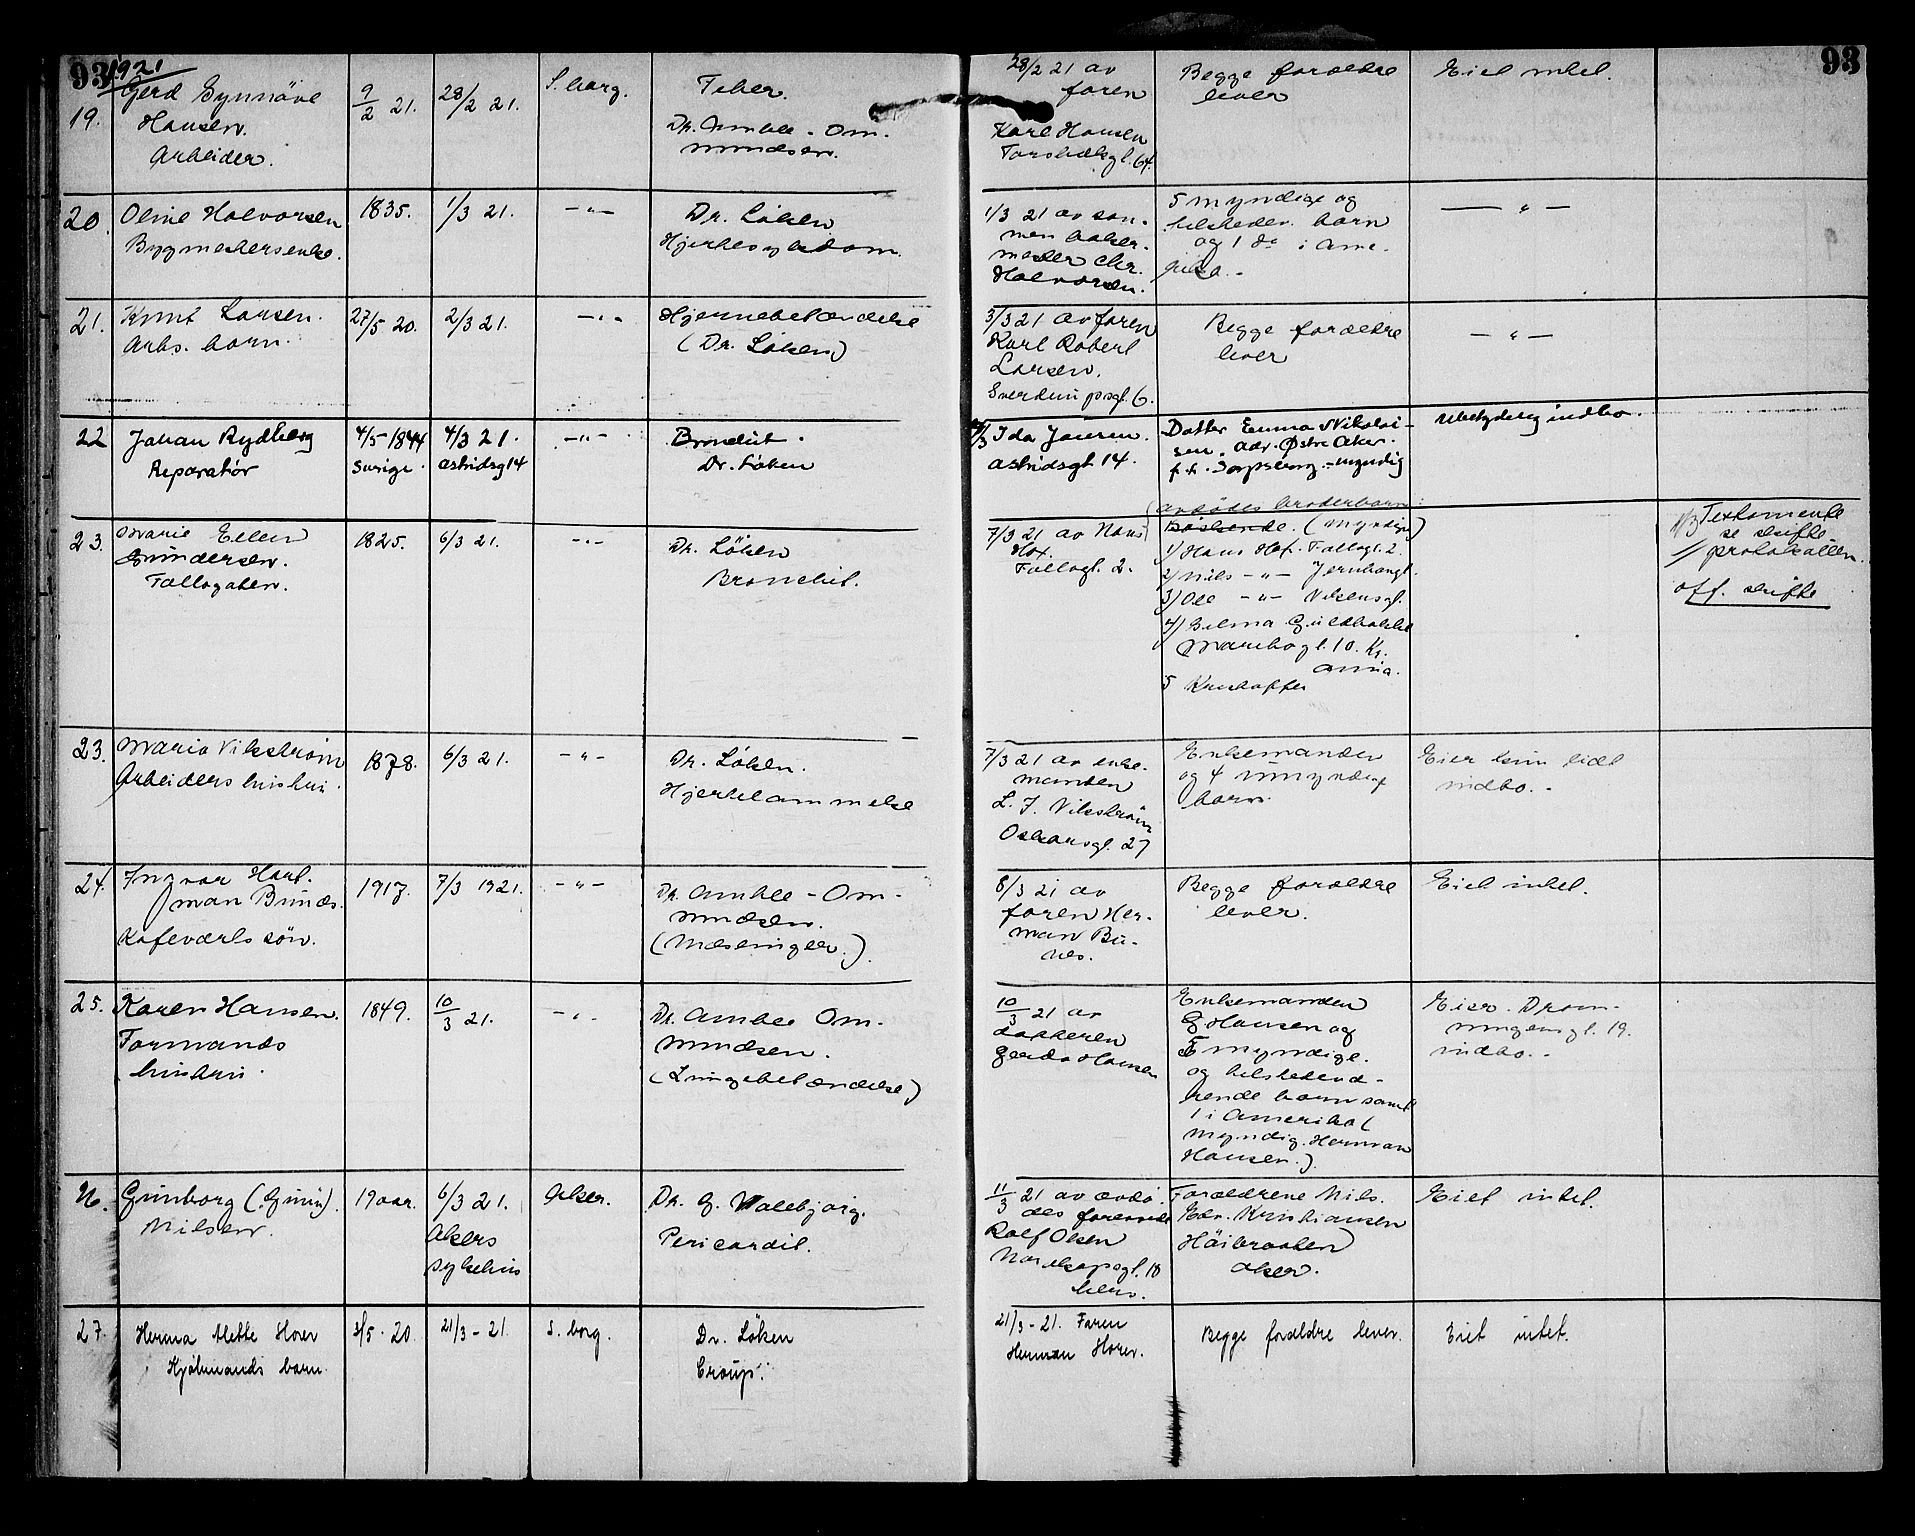 93 1921
19. Gerd Synnöve
Hansen.
Arbeider.
9/2 21.
28/2 21.
S. borg.
Feber.
Dr. Amble-Om-
mundsen.
28/2 21 av
faren
Karl Hansen
Begge forældre
lever
Eiet intet.
93
20. Oline Halvorsen
Bygmestersenke.
1835.
1/3 21.
— " —
Dr. Løken
Hjertesykdom.
1/3 21 av søn-
nen baker-
mester Chr.
Halvorsen.
5 myndige og
tilstedev. barn
og 1 do i Ame-
rika.-
— " —
21. Knut Larsen.
Arbs. barn.
27/5 20.
2/3 21.
— " —
Hjernebetændelse
(Dr. Løken)
3/3 21 av faren
Karl Robert
Larsen.
Sverdrupsgt. 6.
Begge forældre
lever
— " —
22 Johan Rydberg
Reparatør
4/5-1844
Sverige.
4/3 21.
Astridsg 14
— " —
Bronchit.
Dr. Løken
Ida Jansen.
Astridsgt 14.
Datter Emma Nikolai-
sen. adr. Østre Aker.
f. h. Sarpsborg.-myndig
Ubetydelig indbo.
23. Marie Ellen
Gundersen.
1825.
6/3 21.
— " —
Dr. Löken
Bronchit.
7/3 21 av Hans
Hof.
avdødes broderbarn
(myndige)
1/ Hans Hof.
2/ Nils — " —
3/ Ole — " —
4/
5 Kristoffer
Testamente
se skifte-
protokollen.
off. skifte
23. Maria Vikström
Arbeiders hustru.
1878.
6/3 21.
— " —
Dr. Løken.
Hjertelammelse
7/3 21 av enke-
manden
L. J. Vikström
Oskarsgt. 27
Enkemanden
og 4 umyndige
barn.
Eier kun lidt
indbo.-
24. Ingvar Hart-
man Bunæs.
Kafeværts søn.
1917.
7/3 1921.
— " —
Dr. Amble-Om-
mundsen.
(Mæslinger.)
8/3 21 av
faren Her-
man Bu-
næs.
Begge forældre
lever.
Eiet intet.
25. Karen Hansen.
Formands
hustru.
1849.
10/3 21.
— " —
Dr. Amble Om-
mundsen.
(Lungebetændelse)
10/3 21 av
datteren
Gerda Hansen
Enkemanden
G Hansen og
5 myndige.
og tilstedevæ-
rende barn samt
1 i Amerika (
myndig. Herman
Hansen.)
Eier. Dron-
ningensgt. 19.
indbo.-
26. Gunborg (Gunn).
Nilsen.
19 aar.
6/3 21.
Akers
sykehus
Aker.
Dr. G.
Pericardit.
11/3 21 av avdø-
des forlovede
Rolf Olsen
Forældrene Nils.
Edv. Kristiansen
Höibraaten
Aker.
Eiet intet.
27. Herma Mette Horer
Kjöbmands barn.
3/5. 20.
21/3-21.
S. borg.
Dr. Löken
Croup.
21/3-21. Faren
Herman Horer.
Begge forældre lever.
Eiet intet.